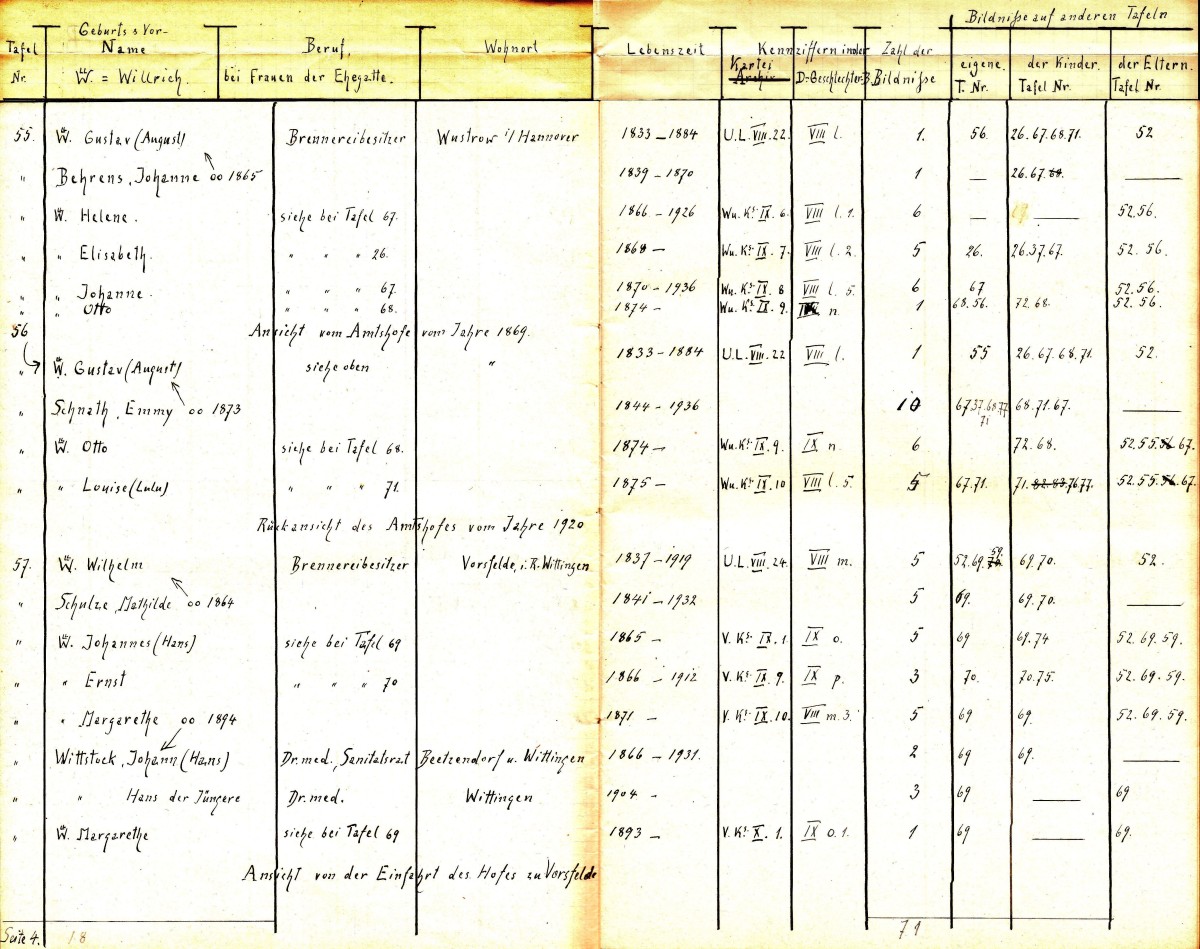 Bildniße auf anderen Tafeln
Geburts & Vor-
Tafel Name Beruf, Wohnort Lebenszeit Kennziffern in der Zahl der eigene. der Kinder. der Eltern.
Nr. W. = Willrich. bei Frauen der Ehegatte. Kartei Archiv D=Geschlechter-B. Bildniße T. Nr. Tafel Nr. Tafel Nr.
55. W. Gustav (August) Brennereibesitzer Wustrow i/Hannover 1833-1884 U.L. VIII. 22. VIII l. 1. 56. 26.67.68.71. 52
" Behrens, Johanne oo 1865 1839-1870 1 — 26.67.68. —
" W. Helene. siehe bei Tafel 67. 1866-1926 Wu. Ks. IX. 6. VIII l. 1. 6 — — 52.56.
" " Elisabeth. " " " 26. 1868- Wu. Ks. IX. 7. VIII l. 2. 5 26. 26.37.67. 52. 56.
" " Johanne. " " " 67. 1870-1936 Wu. Ks. IX. 8 VIII l. 5. 6 67 52.56.
" " Otto " " " 68. 1874- Wu. Ks. IX. 9. n. 1 68.56. 72.68. 52. 56.
56 Ansicht vom Amtshofe vom Jahre 1869.
" W. Gustav (August) siehe oben " 1833-1884 U.L. VIII. 22 VIII l. 1 55 26.67.68.71. 52.
" Schnath, Emmy oo 1873 1844-1936 10 67.37.68.77 68.71.67. —
71
" W. Otto siehe bei Tafel 68. 1874- Wu. Ks. IX. 9. IX n. 6 72.68. 52.55.56.67.
" " Louise (Lulu) " " " 71. 1875- Wu. Ks. IX. 10 VIII l. 5. 5 67.71. 71.82.83.76.77. 52.55.56.67.
Rückansicht des Amtshofes vom Jahre 1920
57. W. Wilhelm Brennereibesitzer Vorsfelde, i. R. Wittingen 1837-1919 U.L. VIII. 24. VIII m. 5 52.69. 59. 69.70. 52.
" Schulze, Mathilde oo 1864 1841-1932 5 69. 69.70. —
" W. Johannes (Hans) siehe bei Tafel 69 1865- V. Ks. IX. 1 IX o. 5 69 69.74 52.69.59.
" " Ernst " " " 70 1866-1912 V. Ks. IX. 9. IX p. 3 70. 70.75. 52.69.59.
" " Margarethe oo 1894 1871- V. Ks. IX. 10. VIII m. 3. 5 69 69. 52.69.59.
" Wittstock, Johann (Hans) Dr. med., Sanitatsrat Beetzendorf u. Wittingen 1866-1931. 2 69 69. —
" " Hans der Jüngere Dr. med. Wittingen 1904- 3 69 — 69
" W. Margarethe siehe bei Tafel 69 1893- V. Ks. X. 1. IX o. 1. 1 69 — 69.
Ansicht von der Einfahrt des Hofes zu Vorsfelde
Seite 4. 18 79